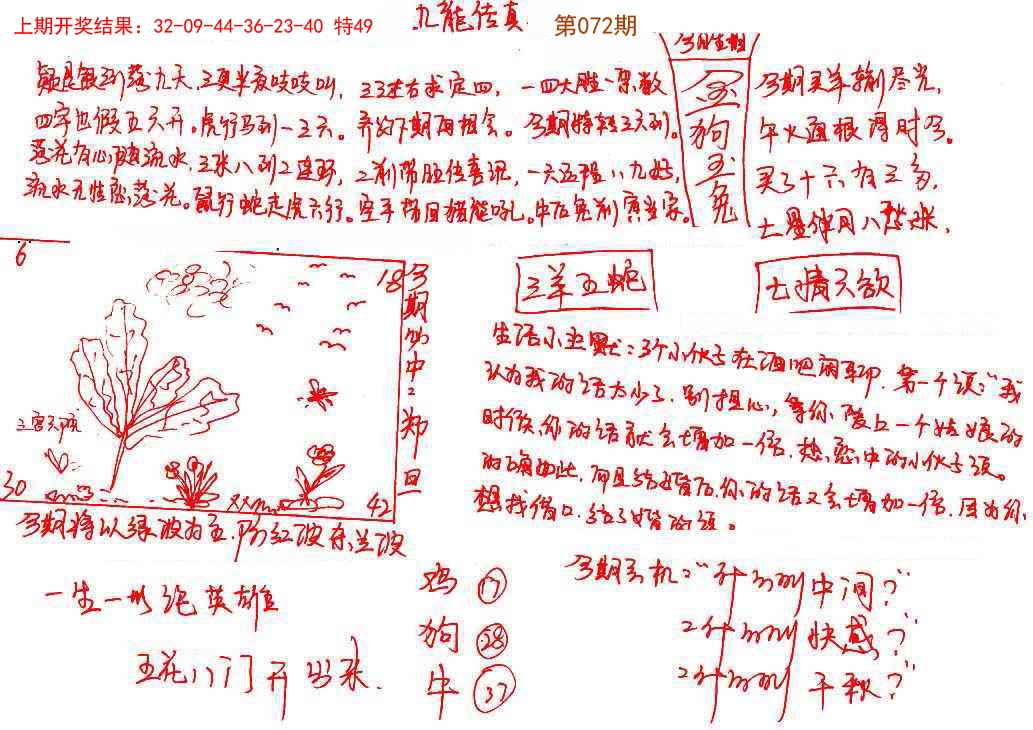 上期开奖结果：32-09-44-36-23-40 特49
九龍传真
第072期
今期生相
金
狗
玉
兔
到落九天,三更半夜吱吱叫,三三左右求定四,一四大胜一架数
四字也假五六开。虎行马到一三六。养的下期再相会。今期特转三天到。
落花有心随流水,三来八到2连环,二前带胆传喜讯,一六五福八九好,
流水无性恋落花。鼠行蛇走虎六行。空手带回猪能吃。牛后兔前寅当家。
今期买羊输尽光,
午火通根得时令。
买了十六有三多,
七星伴月八来,
6
18
三宫六院
30
42
今期必中:郑旦
今期将以绿波为主.防红波杀兰波
三羊五蛇
七情六欲
生活小幽默:3个小伙子在酒吧闲聊.第一个须:“我
认为我的话太少了.别担心,等你爱上一个姑娘的
时候,你的话就会增加一倍.热恋中的小伙子须。
的确如此,而且结婚后,你的话又会增加一倍.因为你,
想找借口.结了婚的须。
一生一世论英雄
五花八门开出来.
鸡 17
狗 28
牛 37
今期玄机:“ 中间?”
快感?”
千秋?”